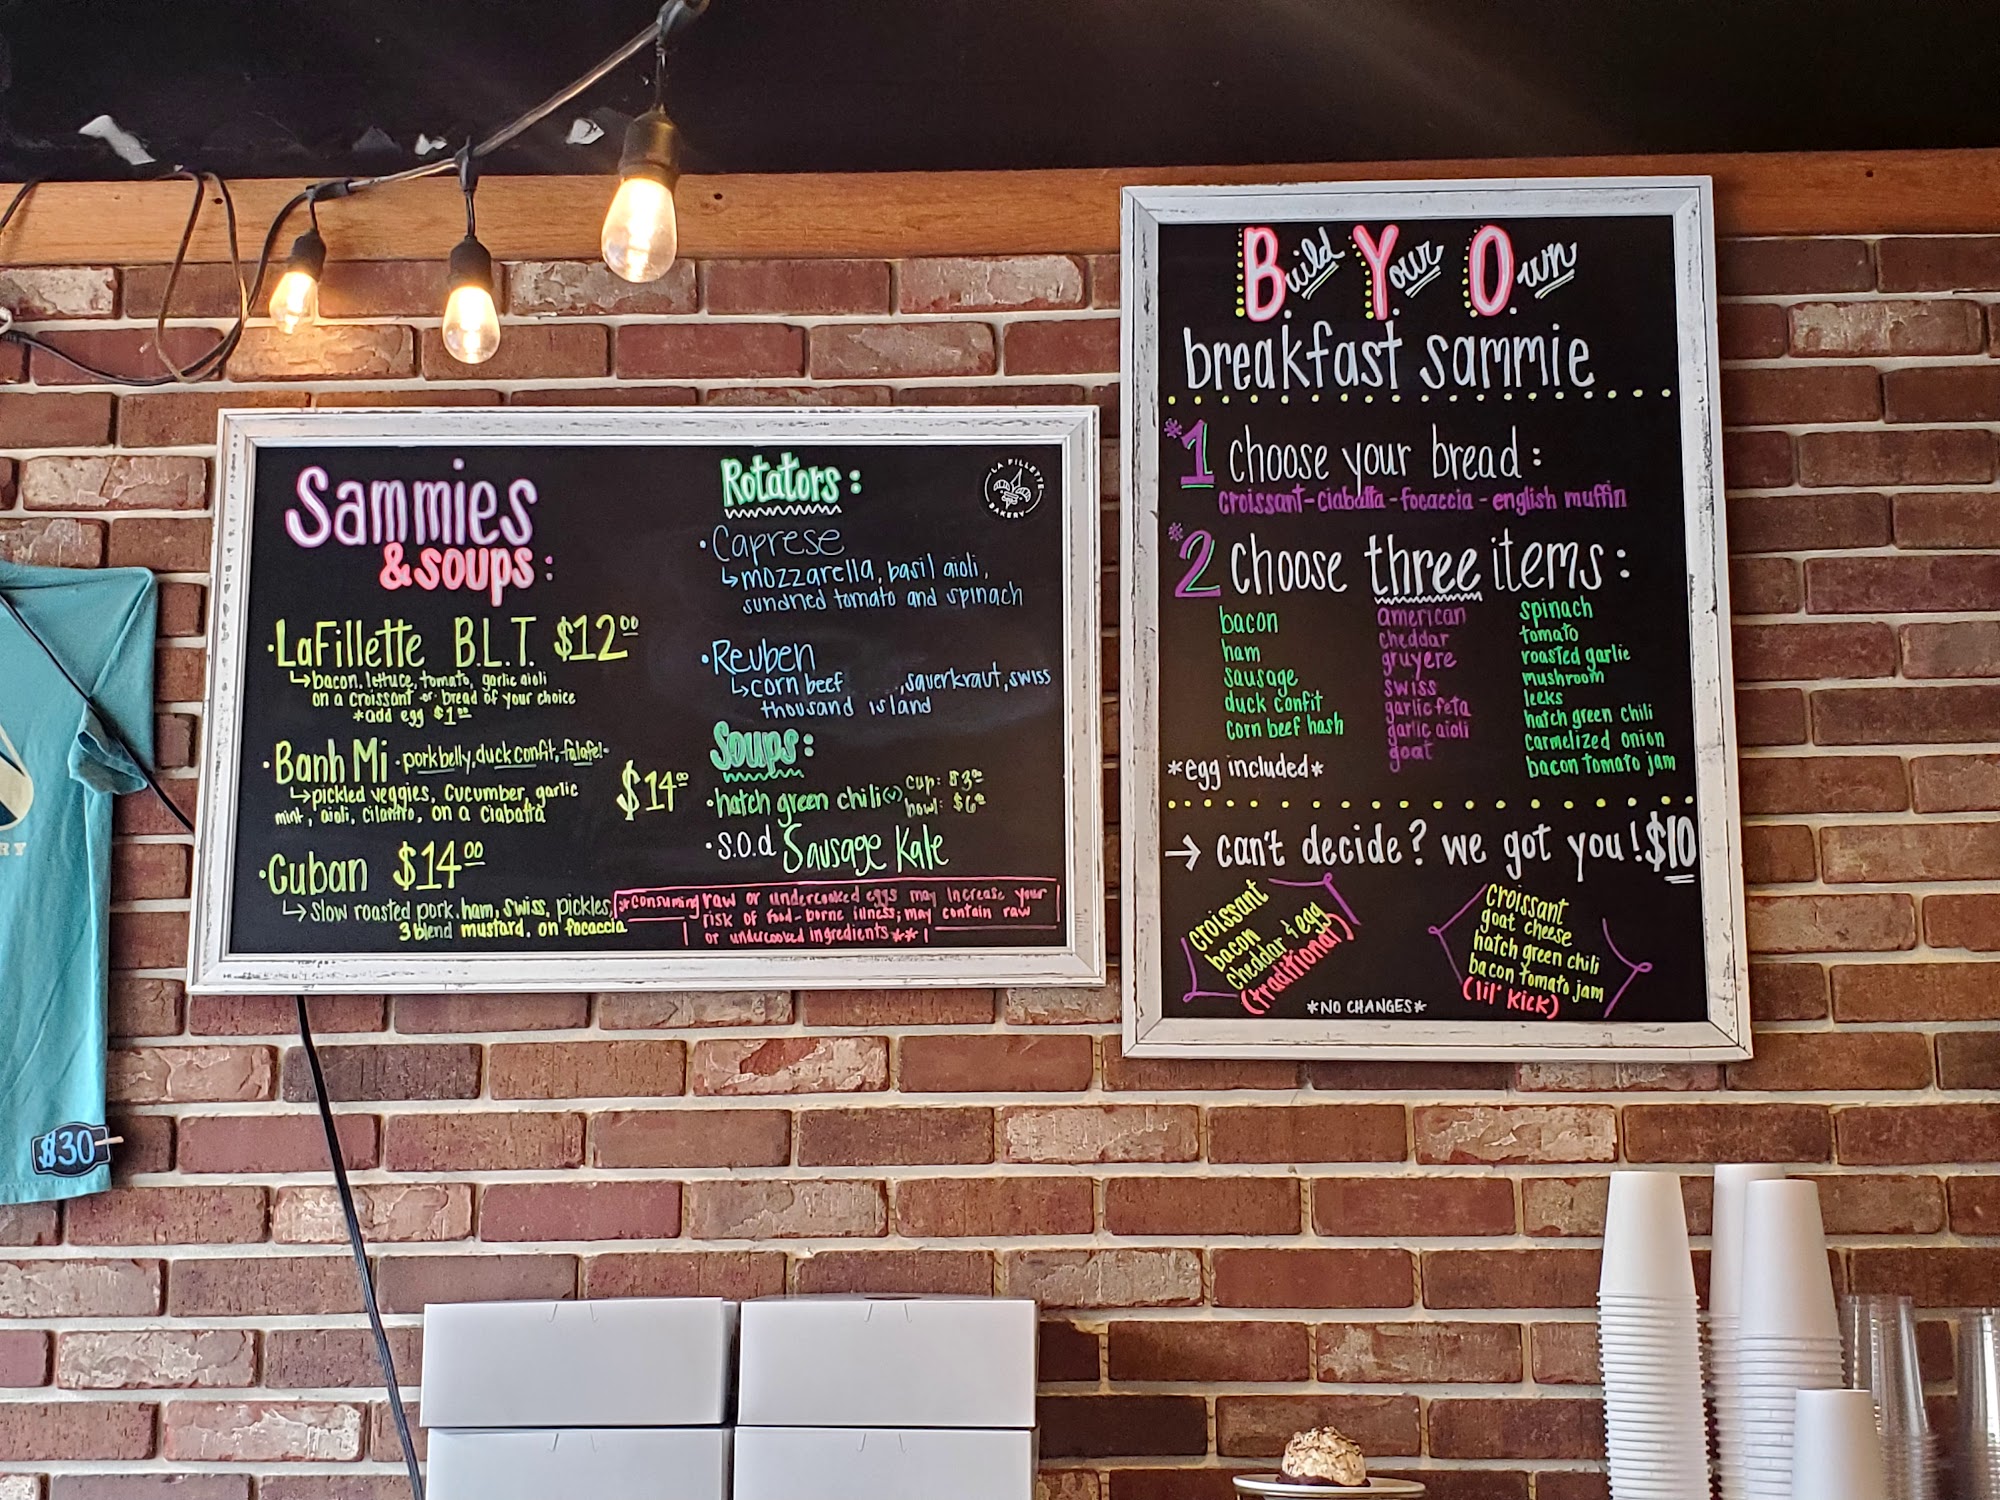 Sammies
& soups:
• LaFillette B.L.T. $12.00
↳ bacon, lettuce, tomato, garlic aioli
on a croissant or bread of your choice
*add egg $1.00
• Banh Mi - pork belly, duck confit, falafel -
↳ pickled veggies, cucumber, garlic
mint, aioli, cilantro, on a ciabatta
$14.00
• Cuban $14.00
↳ slow roasted pork, ham, swiss, pickles,
3 blend mustard, on focaccia
Rotators:
LA FILLETTE
BAKERY
• Caprese
↳ mozzarella, basil aioli,
sundried tomato and spinach
• Reuben
↳ corn beef , sauerkraut, swiss
thousand island
Soups:
• hatch green chili (v) cup: $3.00
bowl: $6.00
• S.O.d Sausage Kale
**consuming raw or undercooked eggs may increase your
risk of food-borne illness; may contain raw
or undercooked ingredients**
B.uild Y.our O.wn
breakfast sammie....
*1 choose your bread:
croissant - ciabatta - focaccia - english muffin
*2 choose three items:
bacon
ham
sausage
duck confit
corn beef hash
american
cheddar
gruyere
swiss
garlic feta
garlic aioli
goat
spinach
tomato
roasted garlic
mushroom
leeks
hatch green chili
carmelized onion
bacon tomato jam
*egg included*
→ can't decide? we got you! $10
croissant
bacon
cheddar & egg
(traditional)
croissant
goat cheese
hatch green chili
bacon tomato jam
(lil' kick)
*NO CHANGES*
RY
$30